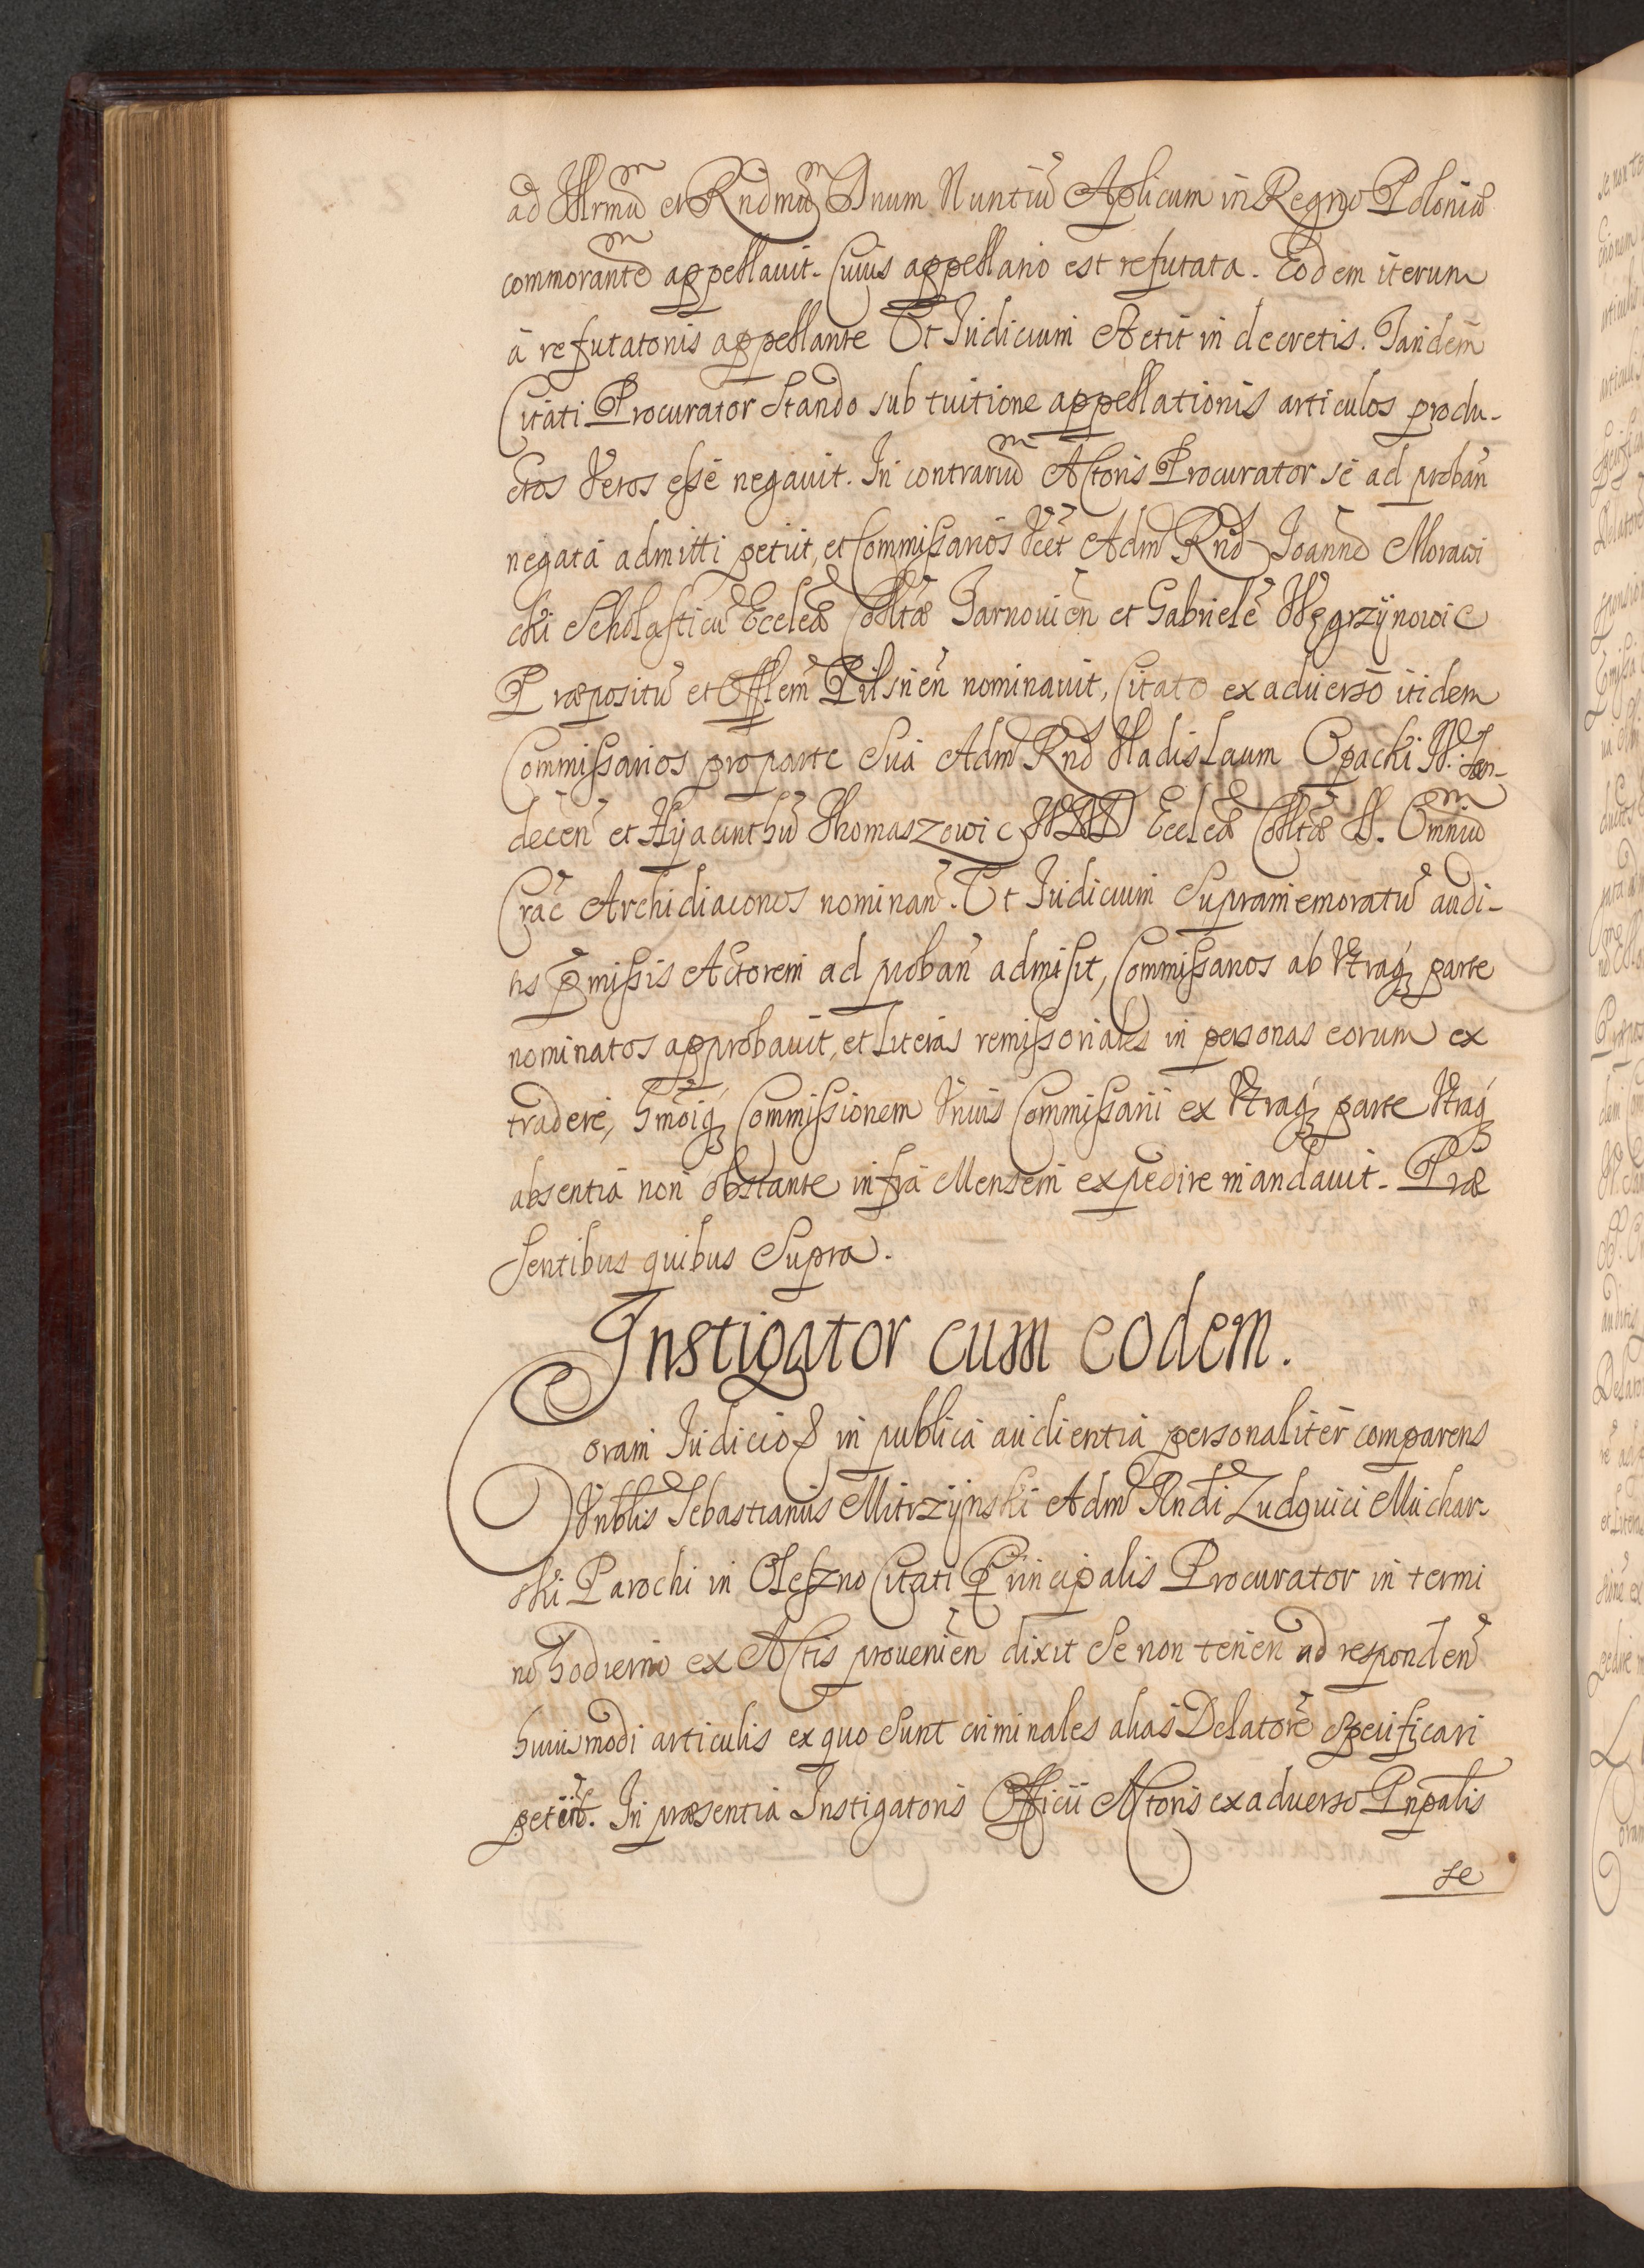 ad Illrmū et Rndmū Dnum Nuntiū Aplicum in Regno Poloniæ
commorantē appellauit. Cuius appellatio est refutata. Eodem iterum
à refutatonis appellante Et Iudicium stetit in decretis. Tandem
Citati Procurator stando sub tuitione appellationis articulos produ-
ctos Veros esse negauit. In contrariū Actoris Procurator se ad probañ
negatā admitti petiit, et Commissarios Vcet Adm Rnd Joannē Morawi
cki Scholasticū Eccleæ Colltæ Tarnouień et Gabrielē Węgrzÿnowic
Præpositū et Offlem Pilsneń nominauit, Citato ex aduerso itidem
Commissarios pro parte sua Adm Rnd Vladislaum Opacki W. San-
deceń et Hÿacinthū Thomaszowic Eccleæ Colltæ S. Omniū
Crac Archidiaconos nominań. Et Iudicium supramemoratū audi-
tis pmissis Actorem ad probań admisit, Commissarios ab Vtraq parte
nominatos approbauit, et Literas remissoriales in personas eorum ex
tradere, hmoiq Commissionem Vnius Commissarii ex Vtraq parte Vtraq
absentia non obstante infra Mensem expedire mandauit. Præ
sentibus quibus supra.
Instigator cum eodem.
Coram Iudicio & in publica audientia personaliter comparens
Vnblis Sebastianus Mitrzÿnski Adm Rndi Ludouici Muchar-
ski Parochi in Oleszno Citati Principalis Procurator in termi
no hodierno ex Actis prouenień dixit se non teneń ad respondeń
huiusmodi articulis ex quo sunt criminales alias Delatorē specificari
petiit. In præsentia Instigatoris Officii Actoris ex aduerso Pnpalis
se